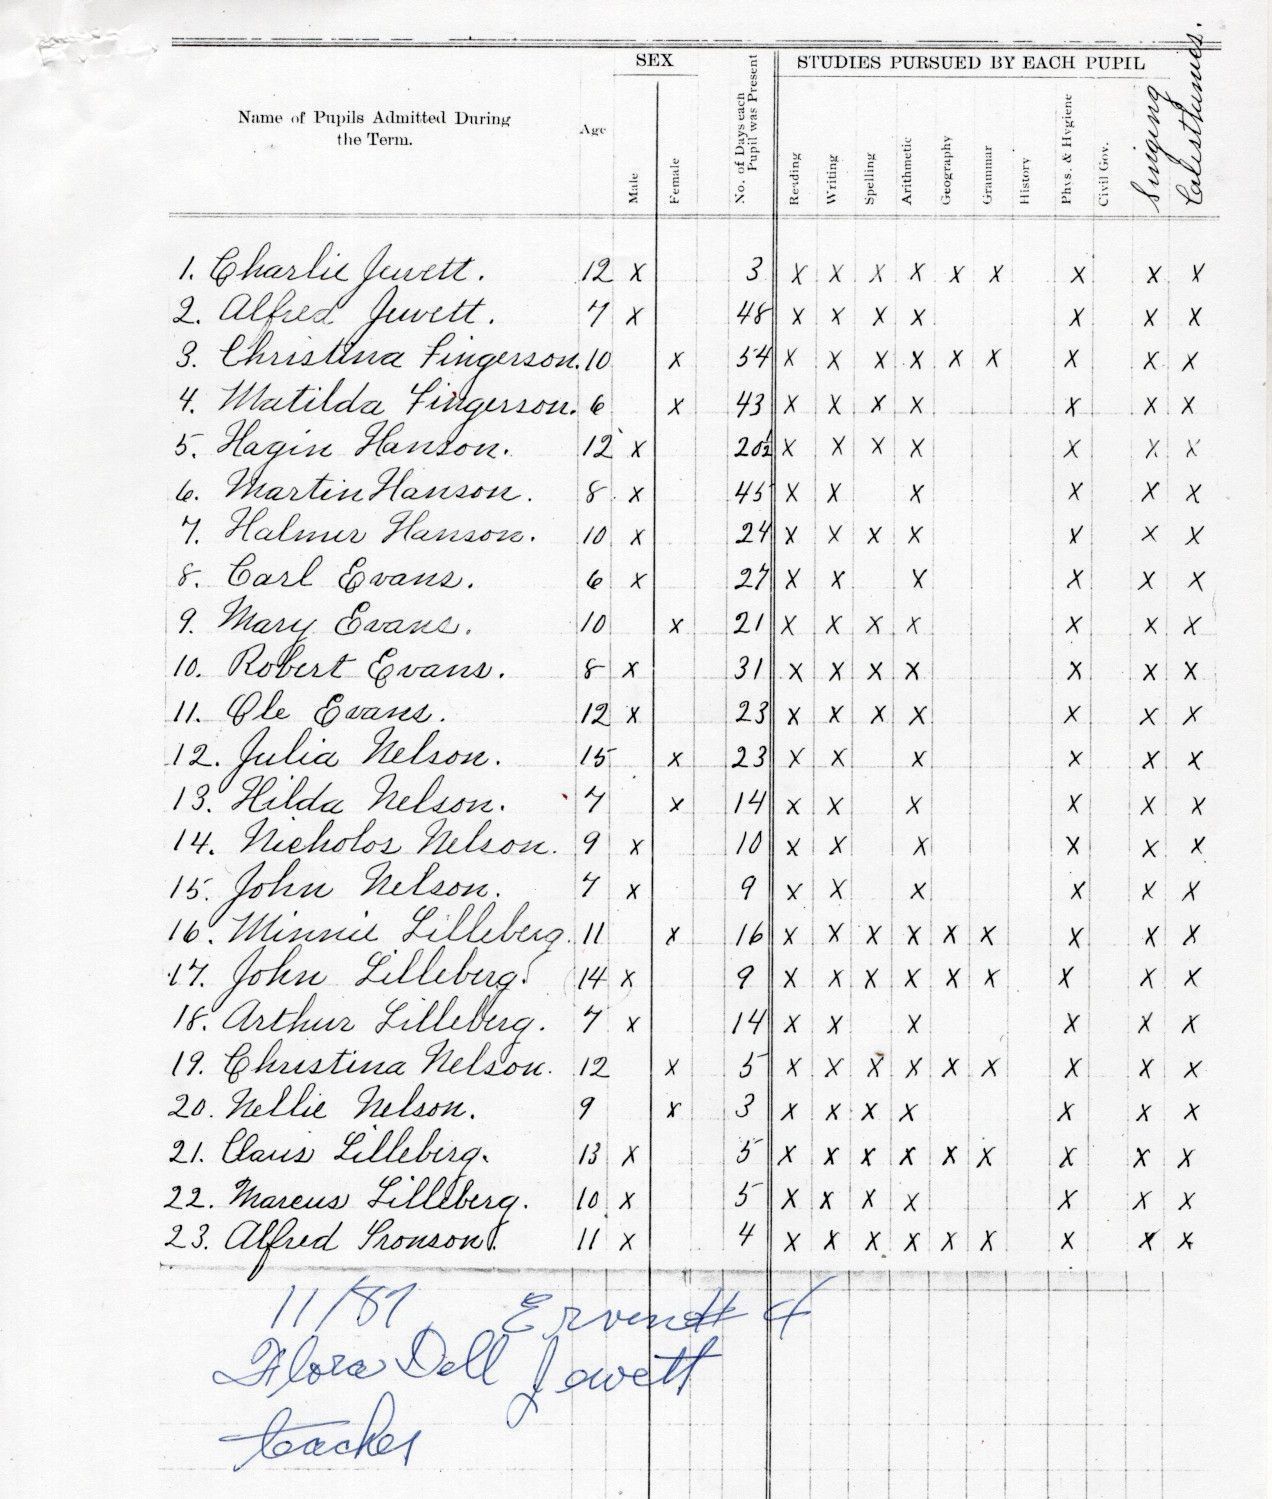 SEX STUDIES PURSUED BY EACH PUPIL
Name of Pupils Admitted During the Term. Age Male Female No. of Days each Pupil was Present Reading Writing Spelling Arithmetic Geography Grammar History Phys. & Hygiene Civil Gov. Singing Calisthumics.
1. Charlie Jewett. 12 x 3 x x x x x x x x x
2. Alfred Jewett. 7 x 48 x x x x x x x
3. Christina Fingerson. 10 x 54 x x x x x x x x x
4. Matilda Fingerson. 6 x 43 x x x x x x x
5. Hagin Hanson. 12 x 20½ x x x x x x x
6. Martin Hanson. 8 x 45 x x x x x x
7. Halmer Hanson. 10 x 24 x x x x x x x
8. Carl Evans. 6 x 27 x x x x x x
9. Mary Evans. 10 x 21 x x x x x x x
10. Robert Evans. 8 x 31 x x x x x x x
11. Ole Evans. 12 x 23 x x x x x x x
12. Julia Nelson. 15 x 23 x x x x x x
13. Hilda Nelson. 7 x 14 x x x x x x
14. Nicholos Nelson. 9 x 10 x x x x x x
15. John Nelson. 7 x 9 x x x x x x
16. Minnie Lilleberg. 11 x 16 x x x x x x x x x
17. John Lilleberg. 14 x 9 x x x x x x x x x
18. Arthur Lilleberg. 7 x 14 x x x x x x
19. Christina Nelson. 12 x 5 x x x x x x x x x
20. Nellie Nelson. 9 x 3 x x x x x x x
21. Claus Lilleberg. 13 x 5 x x x x x x x x x
22. Marcus Lilleberg. 10 x 5 x x x x x x x
23. Alfred Pronson. 11 x 4 x x x x x x x x x
11/87 Ervin #4
Flora Dell Jewett
teacher